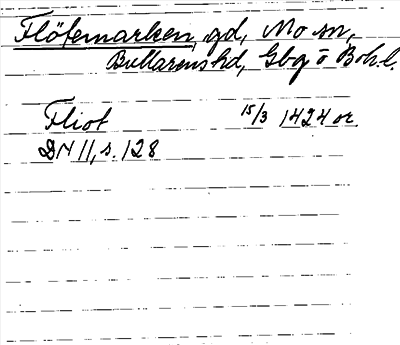 Flötemarken, gd, Mo sn,
Bullarens hd, Gbg o Boh. l.
Fliot 15/3 1424 or.
DN 11, s. 128